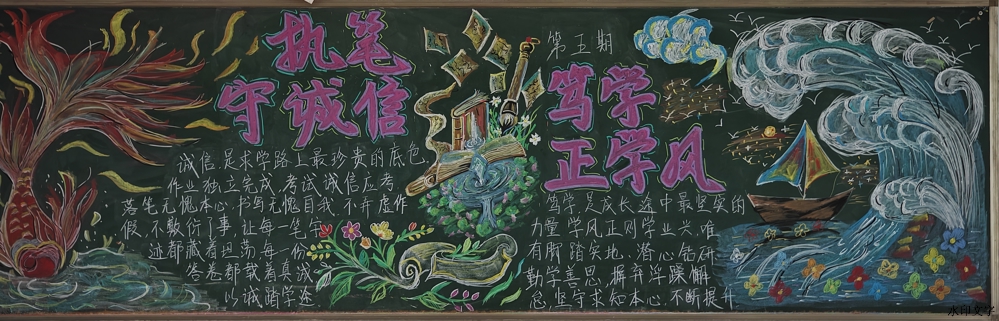 执笔
守诚信
诚信是求学路上最珍贵的底色
作业独立完成，考试诚信应考
落笔无愧本心，书写无愧自我。不弄虚作
假、不敷衍了事，让每一笔字
迹都藏着坦荡，每一份
答卷都载着真诚
以诚踏学途
第五期
笃学
正学风
笃学是成长途中最坚实的
力量，学风正则学业兴，唯
有脚踏实地、潜心钻研、
勤学善思，摒弃浮躁懈
怠，坚守求知本心，不断提升
水印文字